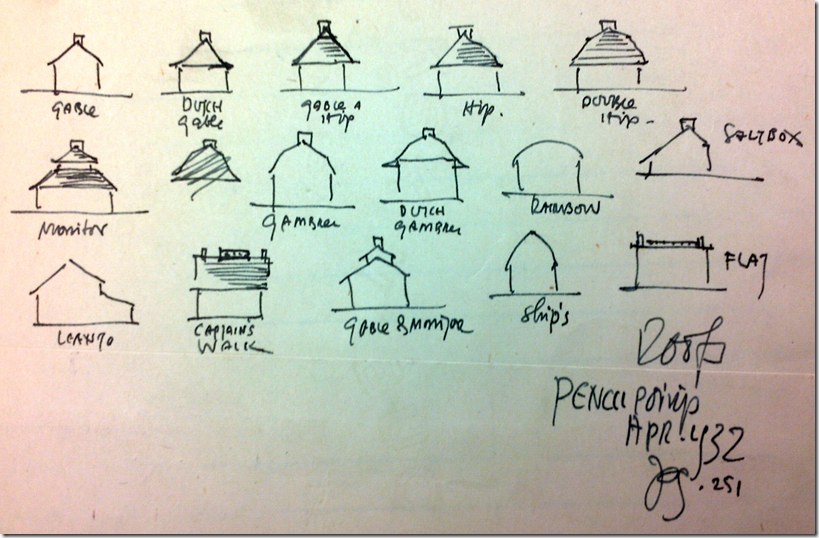 GABLE
DUTCH
gable
gable &
Hip
Hip.
DOUBLE
Hip -
SALTBOX
Monitor
GAMBREL
DUTCH
GAMBREL
RAINBOW
FLAT
LEANTO
CAPTAIN'S
WALK
GABLE & Monitor
Ship's
Roofs
PENCIL points
APR. 1932
.251